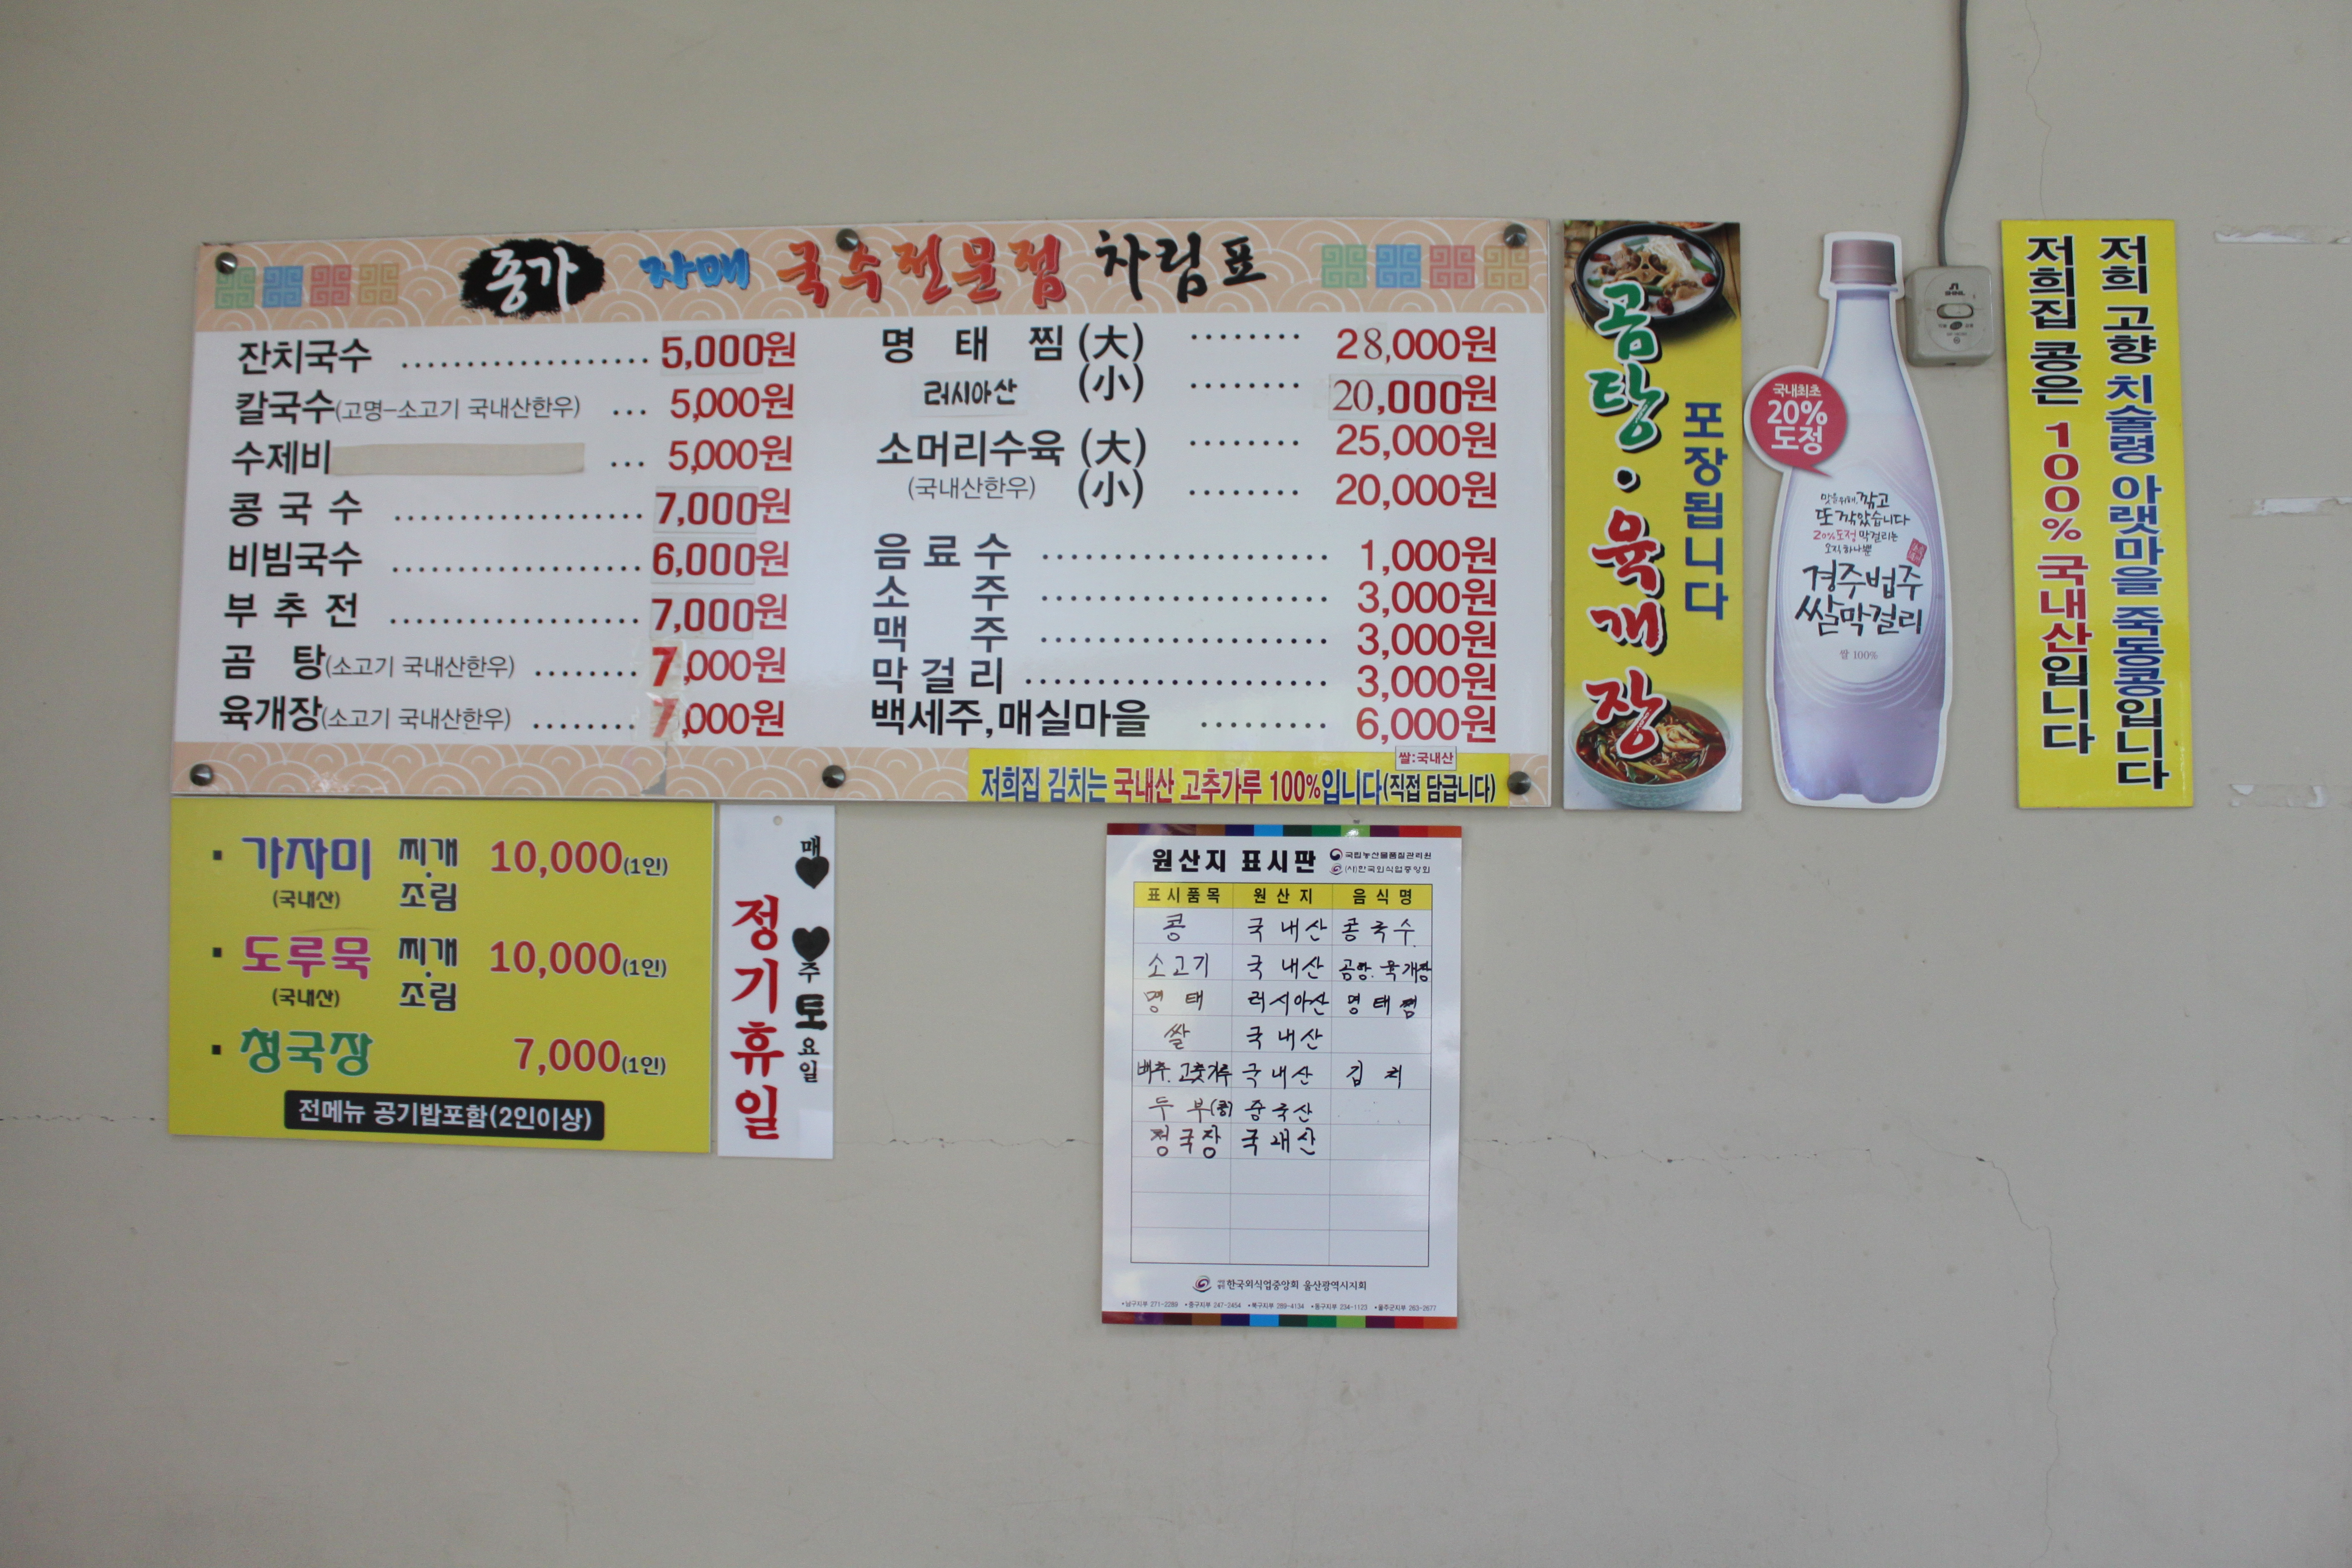 종가 자매 국수전문점 차림표
잔치국수 .................... 5,000원
칼국수(고명-소고기 국내산한우) ... 5,000원
수제비 ... 5,000원
콩 국 수 .................... 7,000원
비빔국수 .................... 6,000원
부 추 전 .................... 7,000원
곰 탕(소고기 국내산한우) ........ 7,000원
육개장(소고기 국내산한우) ........ 7,000원
명 태 찜 (大) ........ 28,000원
러시아산 (小) ........ 20,000원
소머리수육 (大) ........ 25,000원
(국내산한우) (小) ........ 20,000원
음 료 수 ..................... 1,000원
소 주 ..................... 3,000원
맥 주 ..................... 3,000원
막 걸 리 ...................... 3,000원
백세주,매실마을 ......... 6,000원
쌀:국내산
저희집 김치는 국내산 고추가루 100%입니다(직접 담급니다)
곰탕·육개장
포장됩니다
국내최초
20%
도정
맛을위해, 깎고
또 깎았습니다
20%도정 막걸리는
오직 하나뿐
경주법주
쌀막걸리
쌀 100%
저희 고향 치술령 아랫마을 죽동콩입니다
저희집 콩은 100% 국내산입니다
▪ 가자미 찌개 10,000(1인)
(국내산) 조림
▪ 도루묵 찌개 10,000(1인)
(국내산) 조림
▪ 청국장 7,000(1인)
전메뉴 공기밥포함(2인이상)
매 주 토요일
정기휴일
원산지 표시판
국립농산물품질관리원
(사)한국외식업중앙회
표시품목 원산지 음식명
콩 국내산 콩국수
소고기 국내산 곰탕. 육개장
명태 러시아산 명태찜
쌀 국내산
배추. 고춧가루 국내산 김치
두부(콩) 중국산
청국장 국내산
한국외식업중앙회 울산광역시지회
•남구지부 271-2289 •중구지부 247-2454 •북구지부 289-4134 •동구지부 234-1123 •울주군지부 263-2677